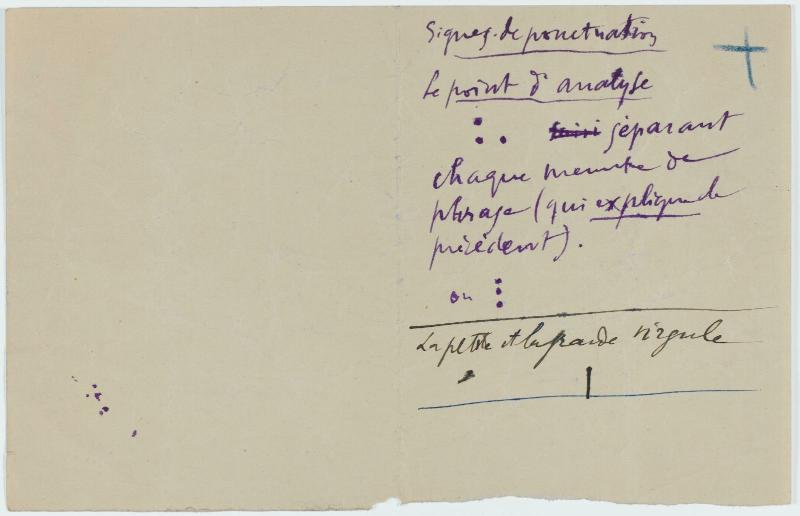 Signes de ponctuation
Le point d'analyse
séparant
chaque membre de
phrase (qui explique le
précédent).
ou ⋮
La petite et la grande virgule
, |